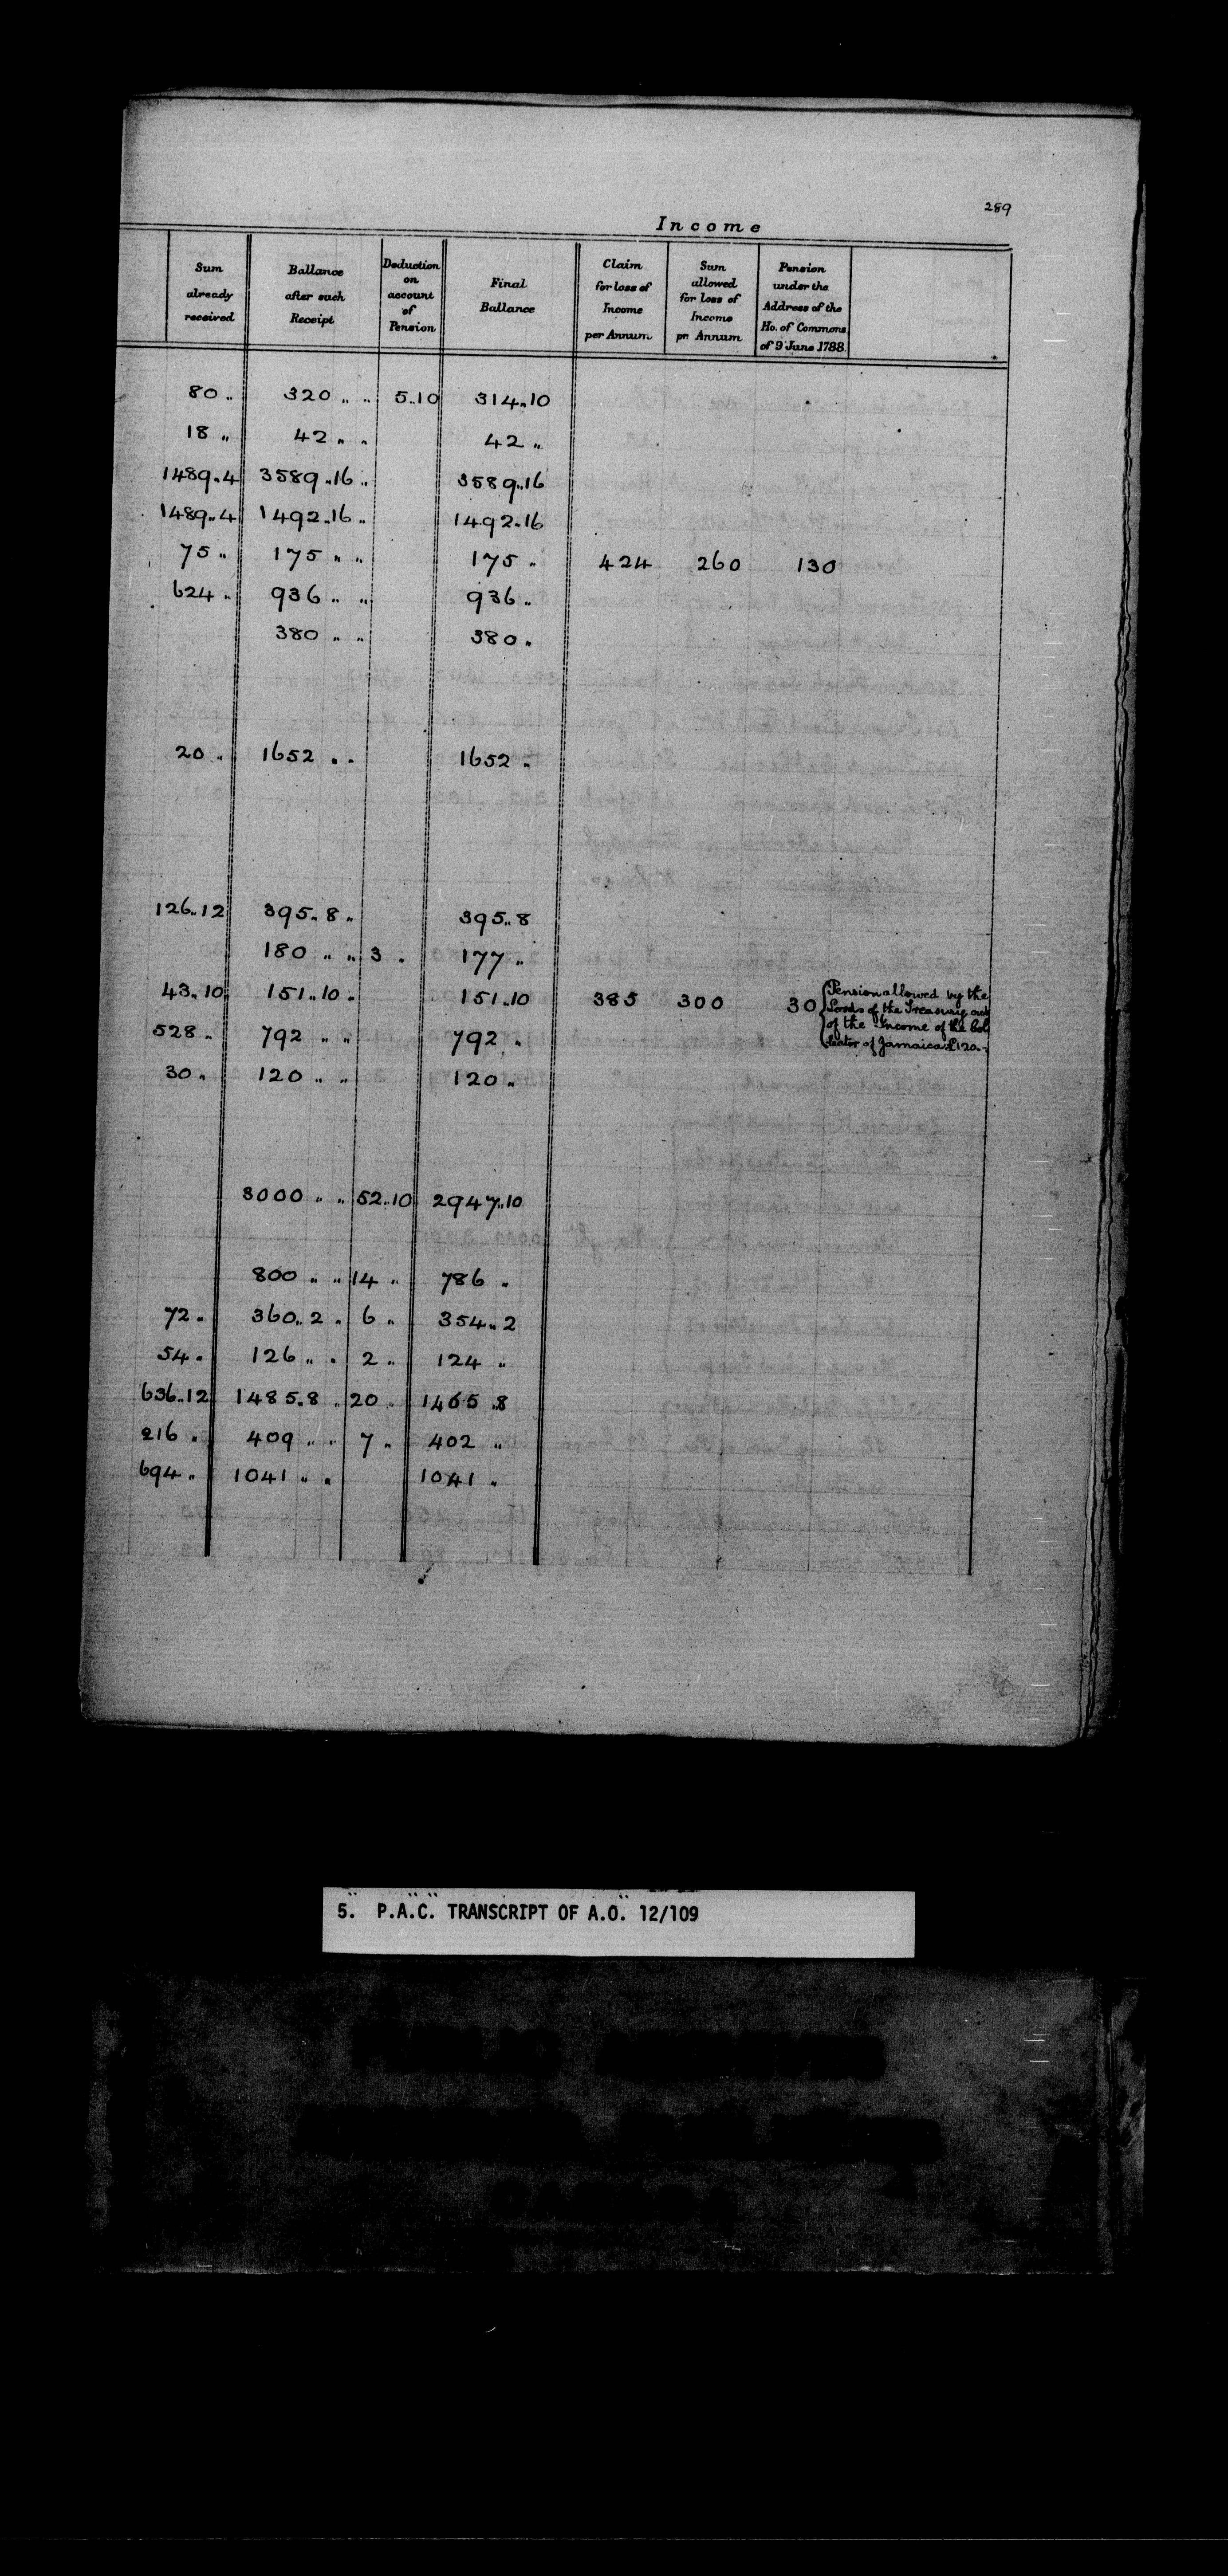 289
Income
Sum already received | Ballance after such Receipt | Deduction on account of Pension | Final Ballance | Claim for loss of Income per Annum | Sum allowed for loss of Income pr. Annum | Pension under the Address of the Ho. of Commons of 9 June 1788
80 „ 320 „ „ 5..10 314..10
18 „ 42 „ „ 42 „
1489..4 3589..16 „ 3589..16
1489..4 1492..16 „ 1492..16
75 „ 175 „ „ 175 „ 424 260 130
624 „ 936 „ „ 936 „
380 „ „ 380 „
20 „ 1652 „ „ 1652 „
126..12 395..8 „ 395..8
180 „ „ 3 „ 177 „
43..10 151..10 „ 151..10 385 300 30 {Pension allowed by the
Lords of the Treasury out
of the Income of the Col
lector of Jamaica £120..
528 „ 792 „ „ 792 „
30 „ 120 „ „ 120 „
3000 „ „ 52..10 2947..10
800 „ „ 14 „ 786 „
72 „ 360..2 „ 6 „ 354..2
54 „ 126 „ „ 2 „ 124 „
636..12 1485..8 „ 20 „ 1465..8
216 „ 409 „ „ 7 „ 402 „
694 „ 1041 „ „ 1041 „
5. P.A.C. TRANSCRIPT OF A.O. 12/109